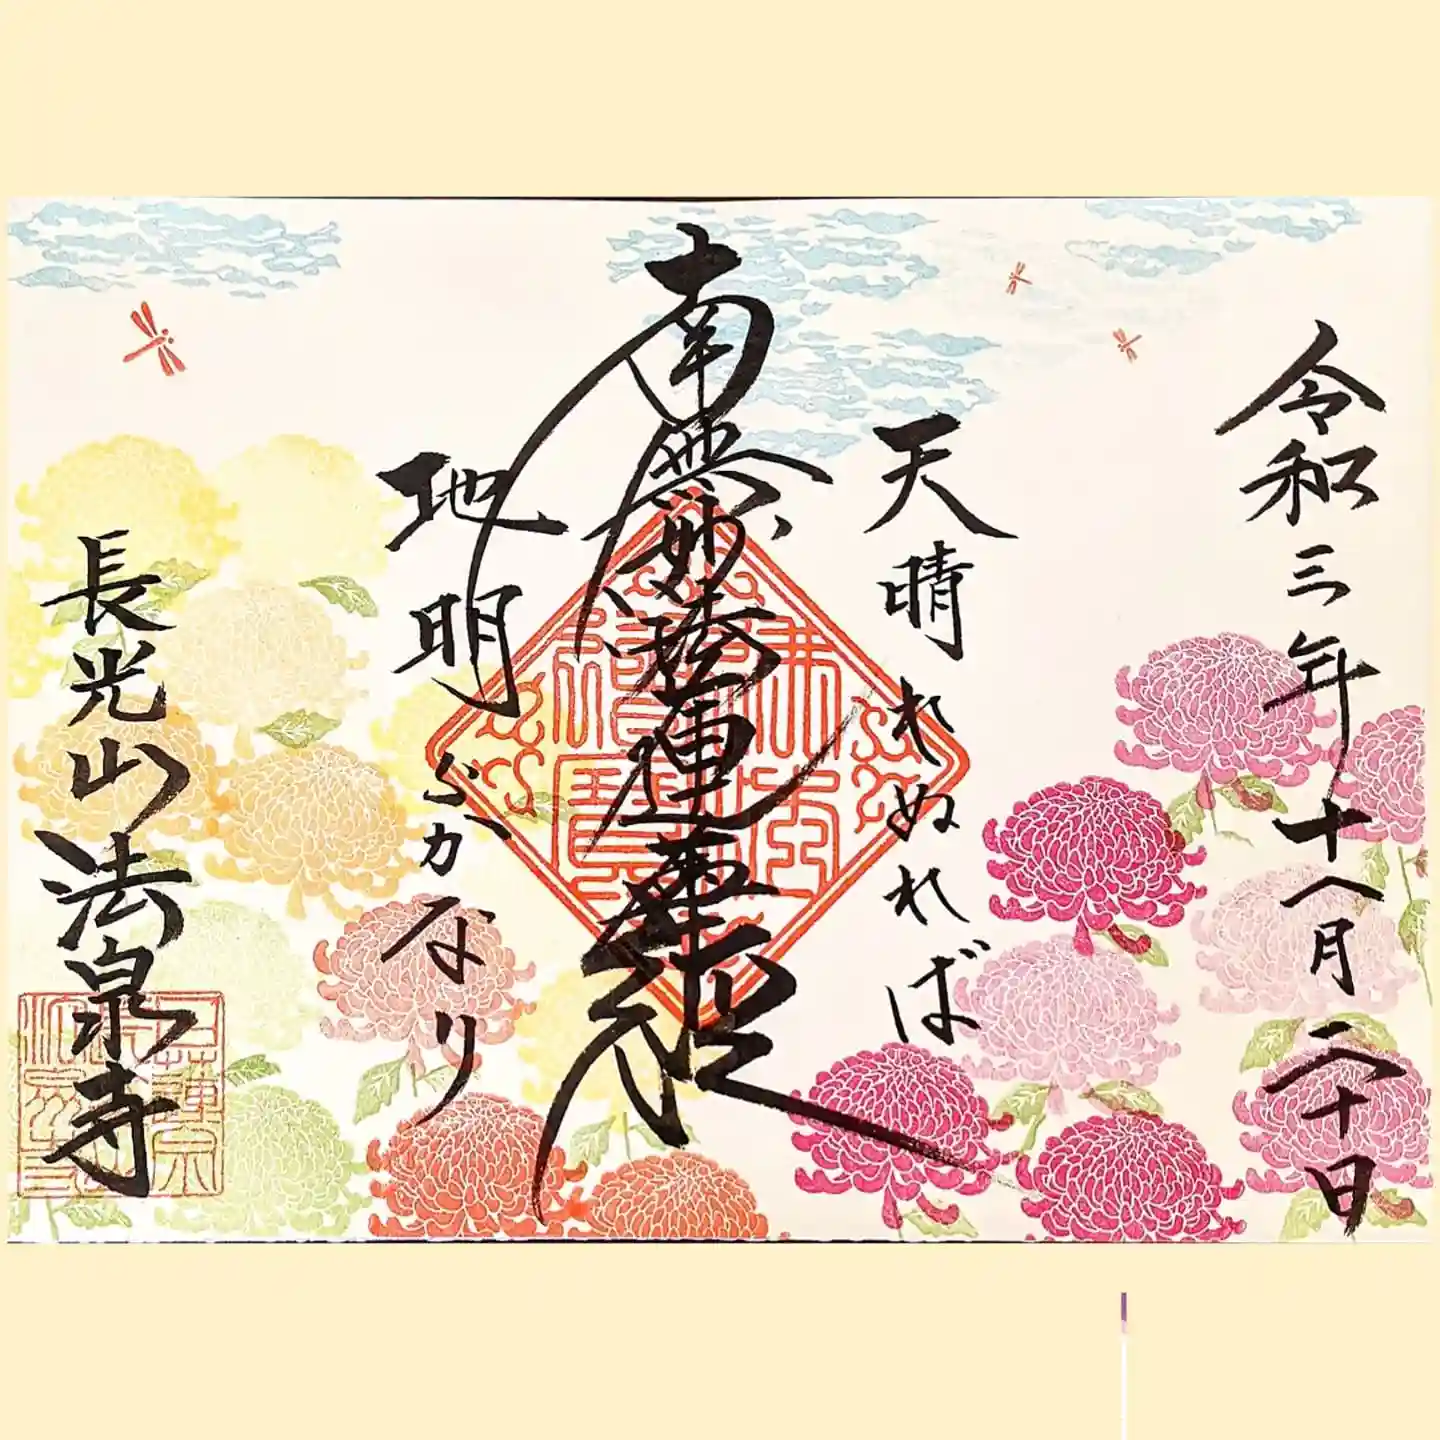 令和三年十一月二十日
天晴れぬれば
南無妙法蓮華経
地明らかなり
長光山法泉寺